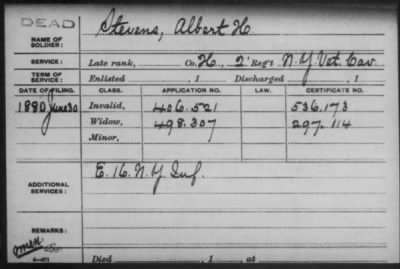 DEAD
NAME OF SOLDIER: Stevens, Albert H.
SERVICE: Late rank, Co. H, 2' Reg't N.Y. Vet. Cav.
TERM OF SERVICE: Enlisted , 1 Discharged , 1
DATE OF FILING. CLASS. APPLICATION NO. LAW. CERTIFICATE NO.
1880 June 30 Invalid, 406.521 536.173
Widow, 498.307 297.114
Minor,
ADDITIONAL SERVICES: E. 16. N.Y. Inf.
REMARKS:
Died , 1 , at